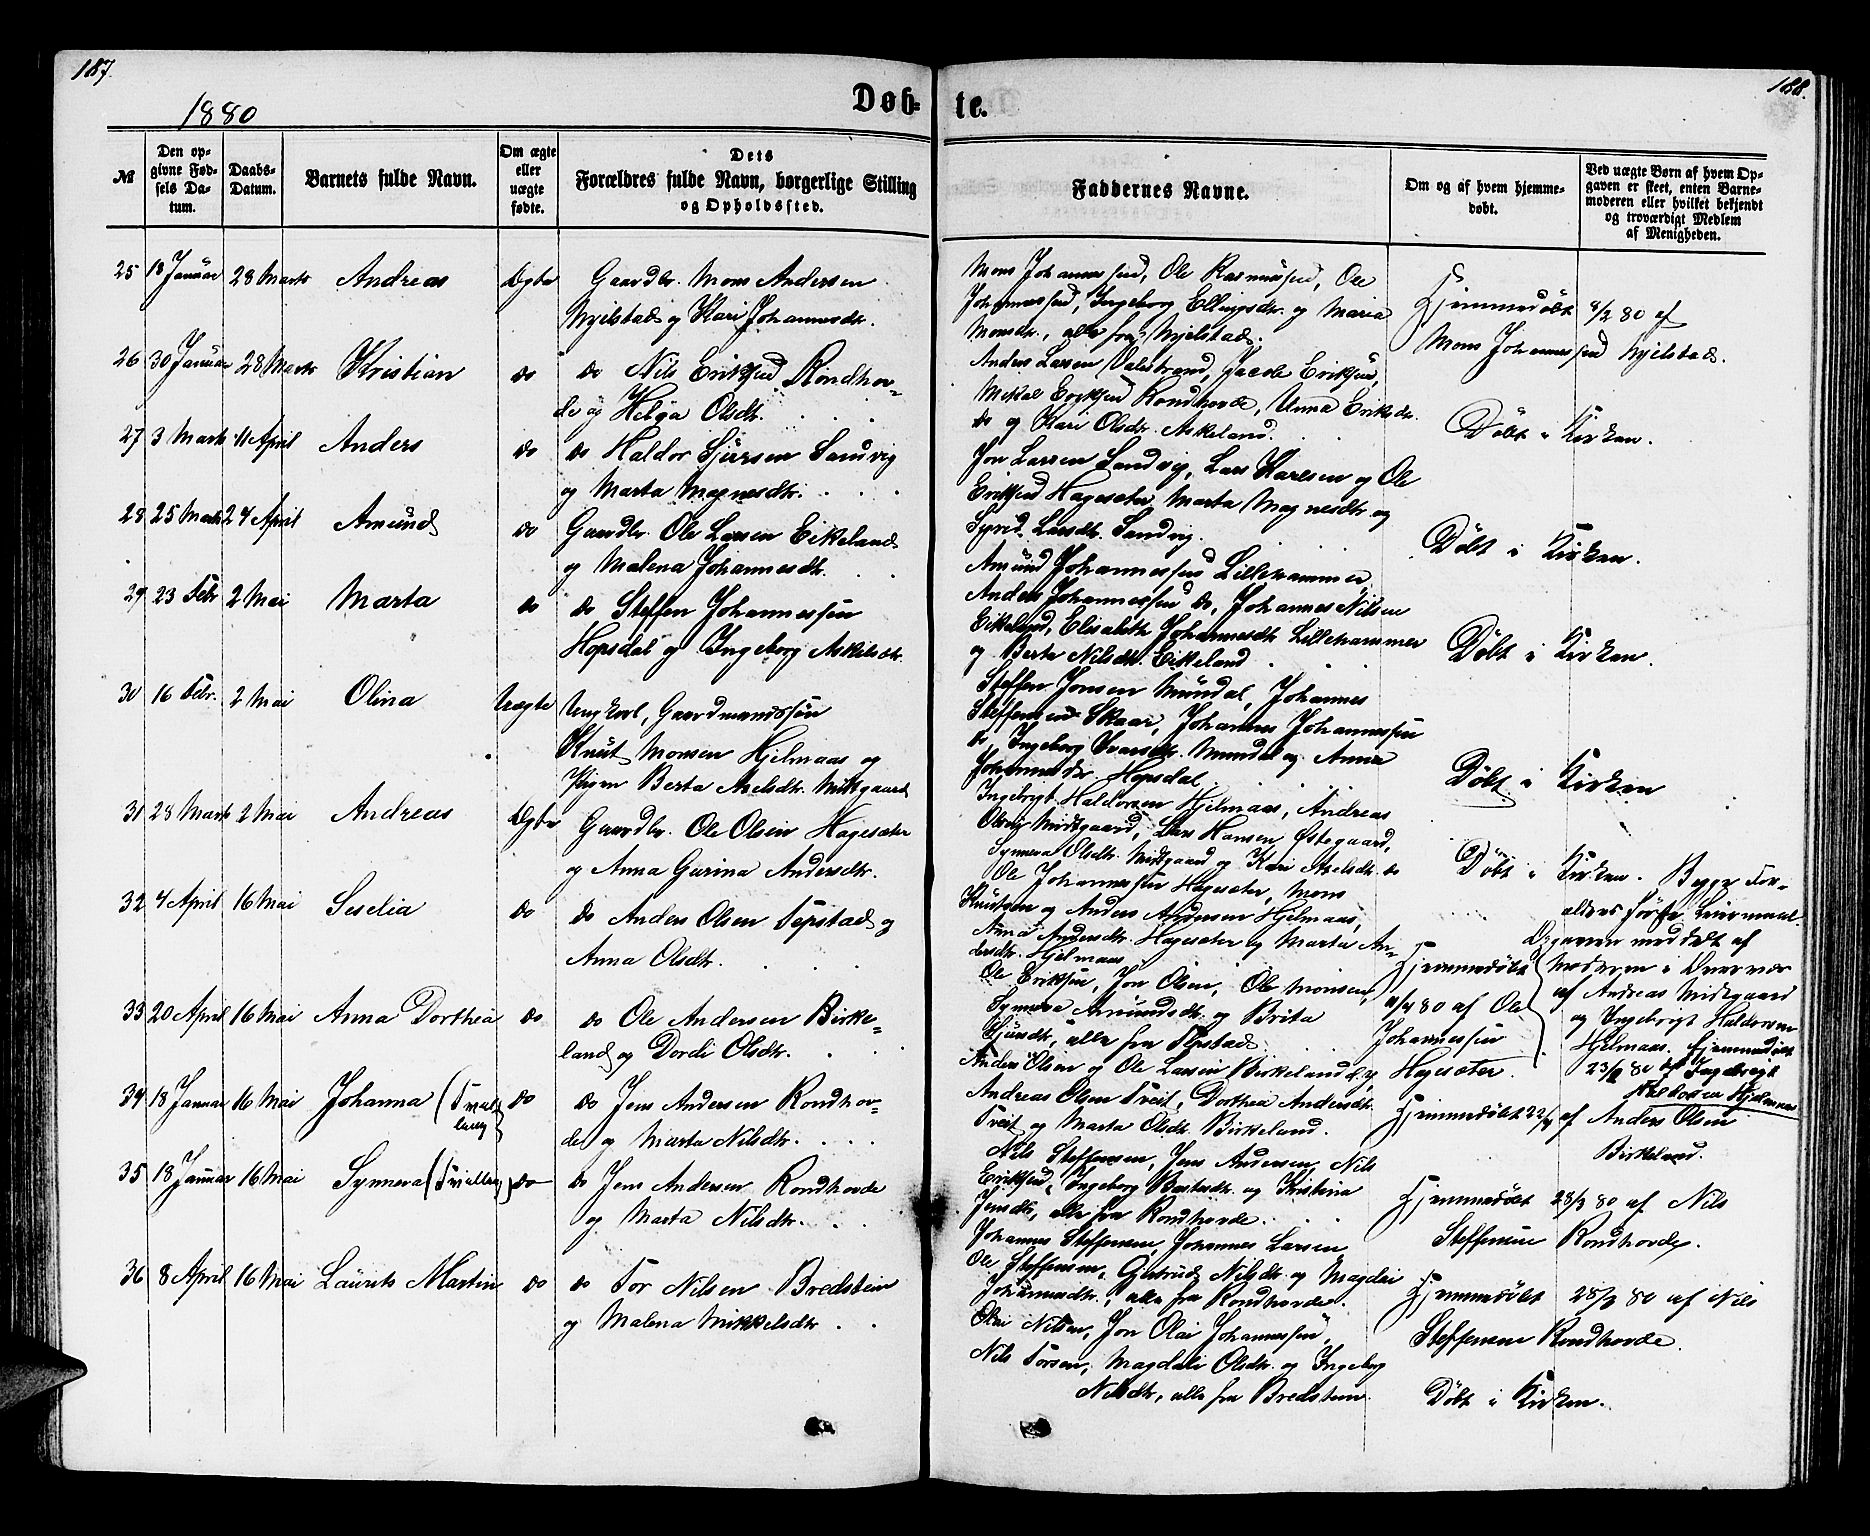 187.
188.
1880
Døb-
te.
№
Den op-
givne Fød-
sels Da-
tum.
Daabs-
Datum.
Barnets fulde Navn.
Om ægte
eller
uægte
fødte.
Dets
Forældres fulde Navn, borgerlige Stilling
og Opholdssted.
Faddernes Navne.
Om og af hvem hjemme-
døbt.
Ved uægte Børn af hvem Op-
gaven er skeet, enten Barne-
moderen eller hvilket bekjendt
og troværdigt Medlem
af Menigheden.
25 18 Januar 28 Marts Andreas Ægte Gaardbr. Mons Andersen
Mjelstad og Kari Johannesdtr.
Mons Johannessen, Ole Rasmussen, Ole
Johannessen, Ingeborg Ellingsdtr. og Maria
Monsdtr., alle fra Mjelstad.
Hjemmedøbt 8/2 80 af
Mons Johannessen Mjelstad.
26 30 Januar 28 Marts Kristian do do Nils Eriksen Rondhov-
de og Helga Olsdtr.
Anders Larsen Valestrand, Jacob Eriksen,
Mikal Eriksen Rondhovde, Unna Eriksdtr.
do og Kari Olsdtr. Askeland.
Døbt i Kirken.
27 3 Marts 11 April Anders do do Haldor Sjursen Sandvig
og Marta Magnesdtr.
Jon Larsen Sandvig, Lars Karlsen og Ole
Eriksen Hagesæter, Marta Magnesdtr og
Synnø. Larsdtr. Sandvig.
Døbt i Kirken.
28 25 Marts 24 April Amund do Gaardbr. Ole Larsen Eikeland
og Malena Johannesdtr.
Amund Johannessen Lillehammer,
Anders Johannessen do, Johannes Nilsen
Eikeland, Elisabeth Johannesdtr Lillehammer
og Berta Nilsdtr. Eikeland
Døbt i Kirken.
29 23 Febr 2 Mai Marta do do Steffen Johannessen
Hopsdal og Ingeborg Askelsdtr.
Steffen Jonsen Mundal, Johannes
Steffensen Skaar, Johannes Johannessen
do, Ingeborg Ivarsdtr. Mundal og Anna
Johannesdtr. Hopsdal.
Døbt i Kirken
30 16 Febr. 2 Mai Olina Uægte Ungkarl, Gaardmandssøn
Knut Monsen Hjelmaas og
Pigen Berta Axelsdtr. Midtgaard
Ingebrigt Haldorsen Hjelmaas, Andreas
Olsen Midtgaard, Lars Hansen Østegaard,
Synneva Olsdtr. Midtgaard og Kari Axelsdtr. do
Døbt i Kirken. Begge For-
ældres første Leiermaal.
Opgaven meddelt af
Moderen i Overvær
af Andreas Midtgaard
og Ingebrigt Haldorsen
Hjelmaas. Hjemmedøbt
23/2 80 af Ingebrigt
Haldorsen Hjelmaas
31 28 Marts 2 Mai Andreas Ægte Gaardbr. Ole Olsen Hagesæter
og Anna Gurina Andersdtr.
Ole Johannessen Hagesæter, Mons
Knutsen og Anders Andersen Hjelmaas,
Anna Andersdtr. Hagesæter og Marta An-
dersdtr. Hjelmaas
Hjemmedøbt
11/4 80 af Ole
Johannessen
Hagesæter.
32 4 April 16 Mai Seselia do do Anders Olsen Tepstad og
Anna Olsdtr.
Ole Eriksen, Jon Olsen, Ole Monsen,
Synneva Amundsdtr. og Brita
Sjursdtr., alle fra Tepstad.
33 20 April 16 Mai Anna Dorthea do do Ole Andersen Birke-
land og Dordi Olsdtr.
Anders Olsen og Ole Larsen Birkeland,
Andreas Olsen Tveit, Dorthea Andersdtr
Tveit og Marta Olsdtr Birkeland.
Hjemmedøbt 22/4 af Anders Olsen
Birkeland.
34 18 Januar 16 Mai Johanna (Tvil-
ling) do do Jens Andersen Rondhov-
de og Marta Nilsdtr.
Nils Steffensen, Jens Andersen, Nils
Eriksen, Ingeborg Bertsdtr. og Kristina
Jensdtr., alle fra Rondhovde.
Hjemmedøbt 28/2 80 af Nils
Steffensen Rondhovde.
35 18 Januar 16 Mai Synneva (Tvilling) do do Jens Andersen Rondhovde
og Marta Nilsdtr.
Johannes Steffensen, Johannes Larsen,
Ole Steffensen, Gjertrud Nilsdtr. og Magdli
Johannesdtr., alle fra Rondhovde.
Hjemmedøbt 28/2 80 af Nils
Steffensen Rondhovde.
36 8 April 16 Mai Laurits Martin do do Tor Nilsen Bredstein
og Malena Mikkelsdtr
Olai Nilsen, Jon Olai Johannessen,
Nils Torsen, Magdali Olsdtr. og Ingeborg
Nilsdtr., alle fra Bredstein.
Døbt i Kirken.